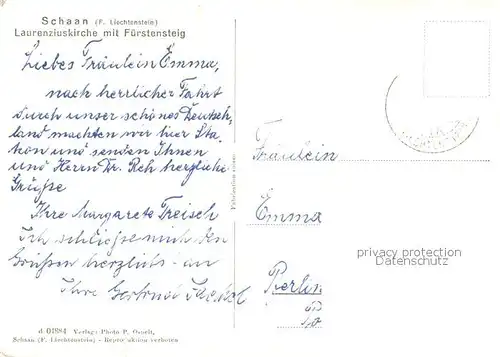 Schaan (F. Liechtenstein)
Laurenziuskirche mit Fürstensteig
Liebes Fräulein Emma,
nach herrlicher Fahrt
durch unser schönes Deutsch-
land machten wir hier Sta-
tion und senden Ihnen
und Herrn Dr. Reh herzliche
Grüße
Ihre Margarete Treisch
Ich schließe mich den
Grüßen herzlich an
Ihre Gertrud
Fräulein
Emma
Berlin
privacy protection
Datenschutz
d 01884 Verlag: Photo P. Ospelt,
Schaan (F. Liechtenstein) - Reproduktion verboten